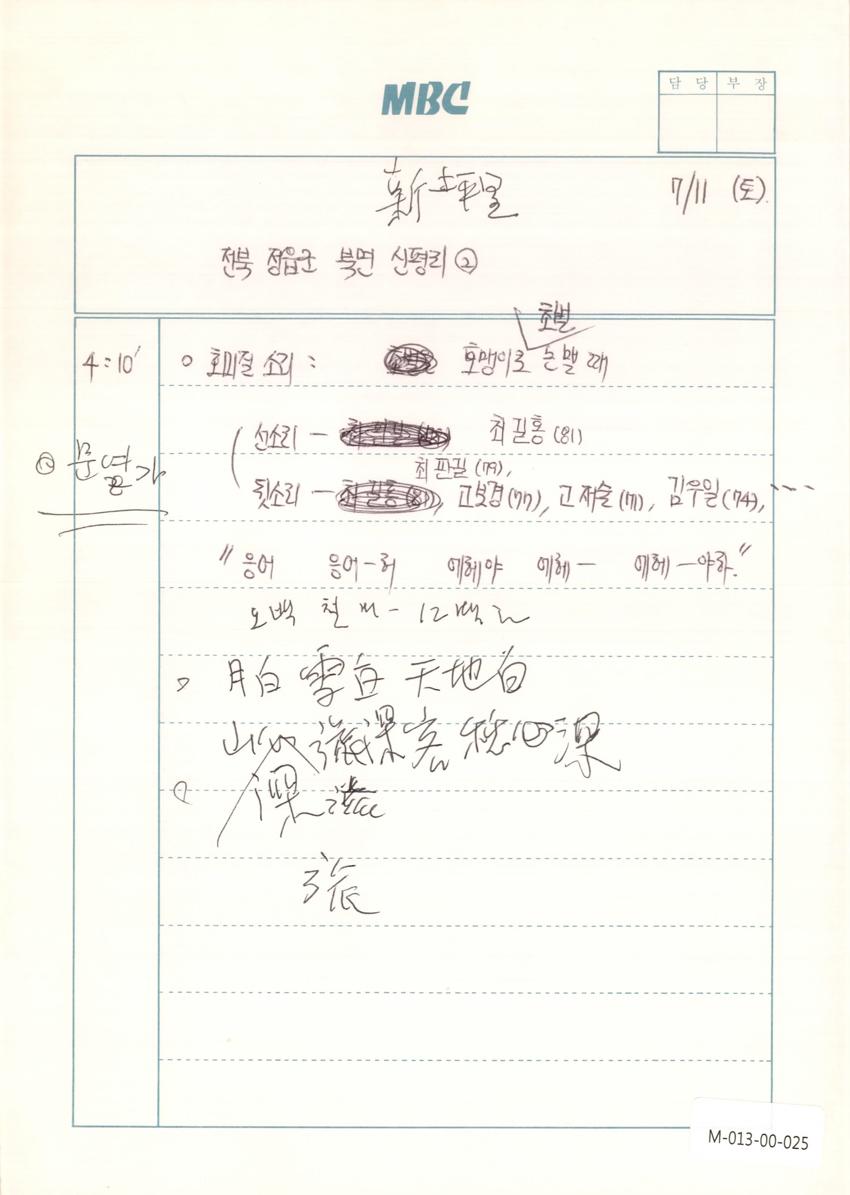 MBC
담당 부장
新坪里 7/11 (토)
전북 정읍군 북면 신평리 ②
초벌
4:10' ○ 호미질 소리 : 호맹이로 논맬 때
선소리 — 최길홍 (81)
최판길 (79),
뒷소리 — 고보경 (77), 고재술 (71), 김우일 (74), ----
"응어 응어-허 에헤야 에헤— 에헤—야하."
오백
月白雪白天地白
山
深
張
M-013-00-025